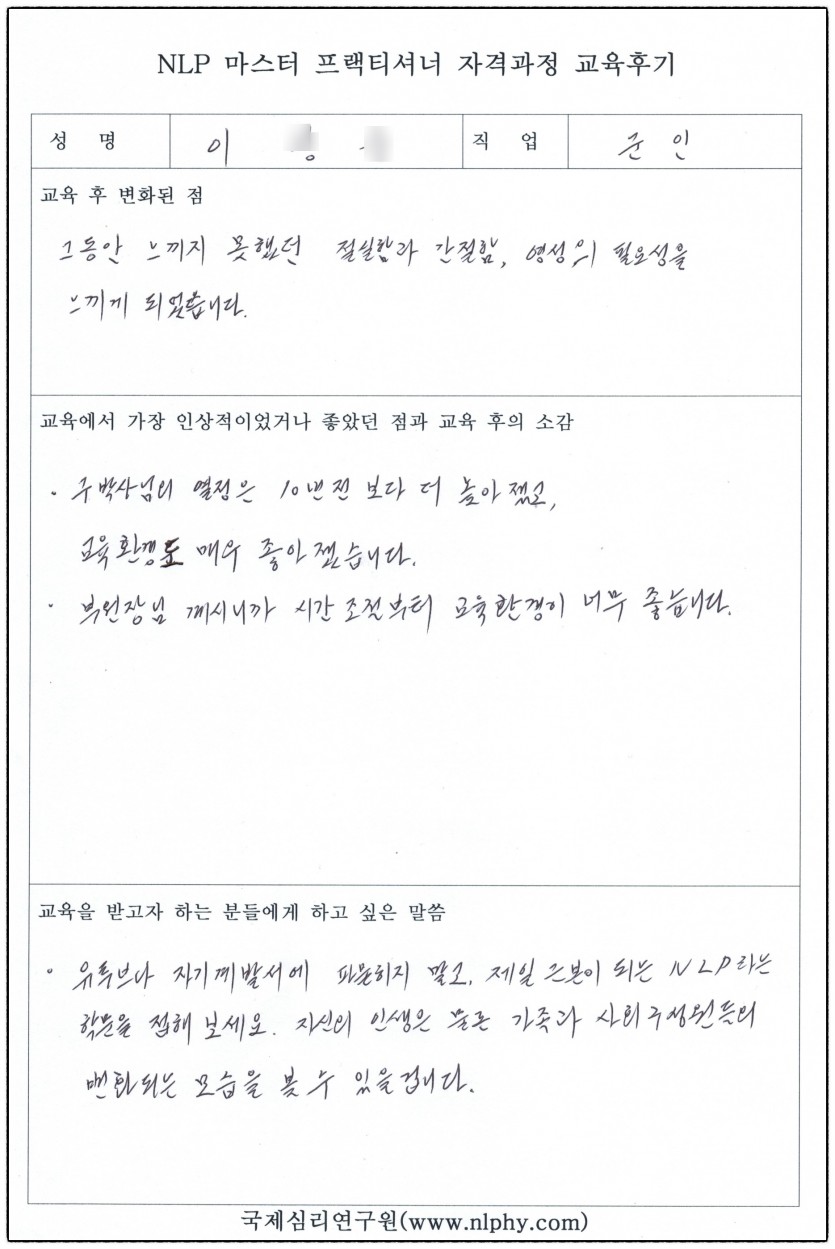 NLP 마스터 프랙티셔너 자격과정 교육후기
성 명 이 직 업 군 인
교육 후 변화된 점
그동안 느끼지 못했던 절실함과 간절함, 영성의 필요성을
느끼게 되었습니다.
교육에서 가장 인상적이었거나 좋았던 점과 교육 후의 소감
· 구박사님의 열정은 10년전 보다 더 높아졌고,
교육환경도 매우 좋아졌습니다.
· 부원장님 계시니까 시간 조절부터 교육환경이 너무 좋습니다.
교육을 받고자 하는 분들에게 하고 싶은 말씀
· 유투브나 자기계발서에 파묻히지 말고, 제일 근본이 되는 NLP라는
학문을 접해 보세요. 자신의 인생은 물론 가족과 사회구성원들의
변화되는 모습을 볼 수 있을겁니다.
국제심리연구원(www.nlphy.com)